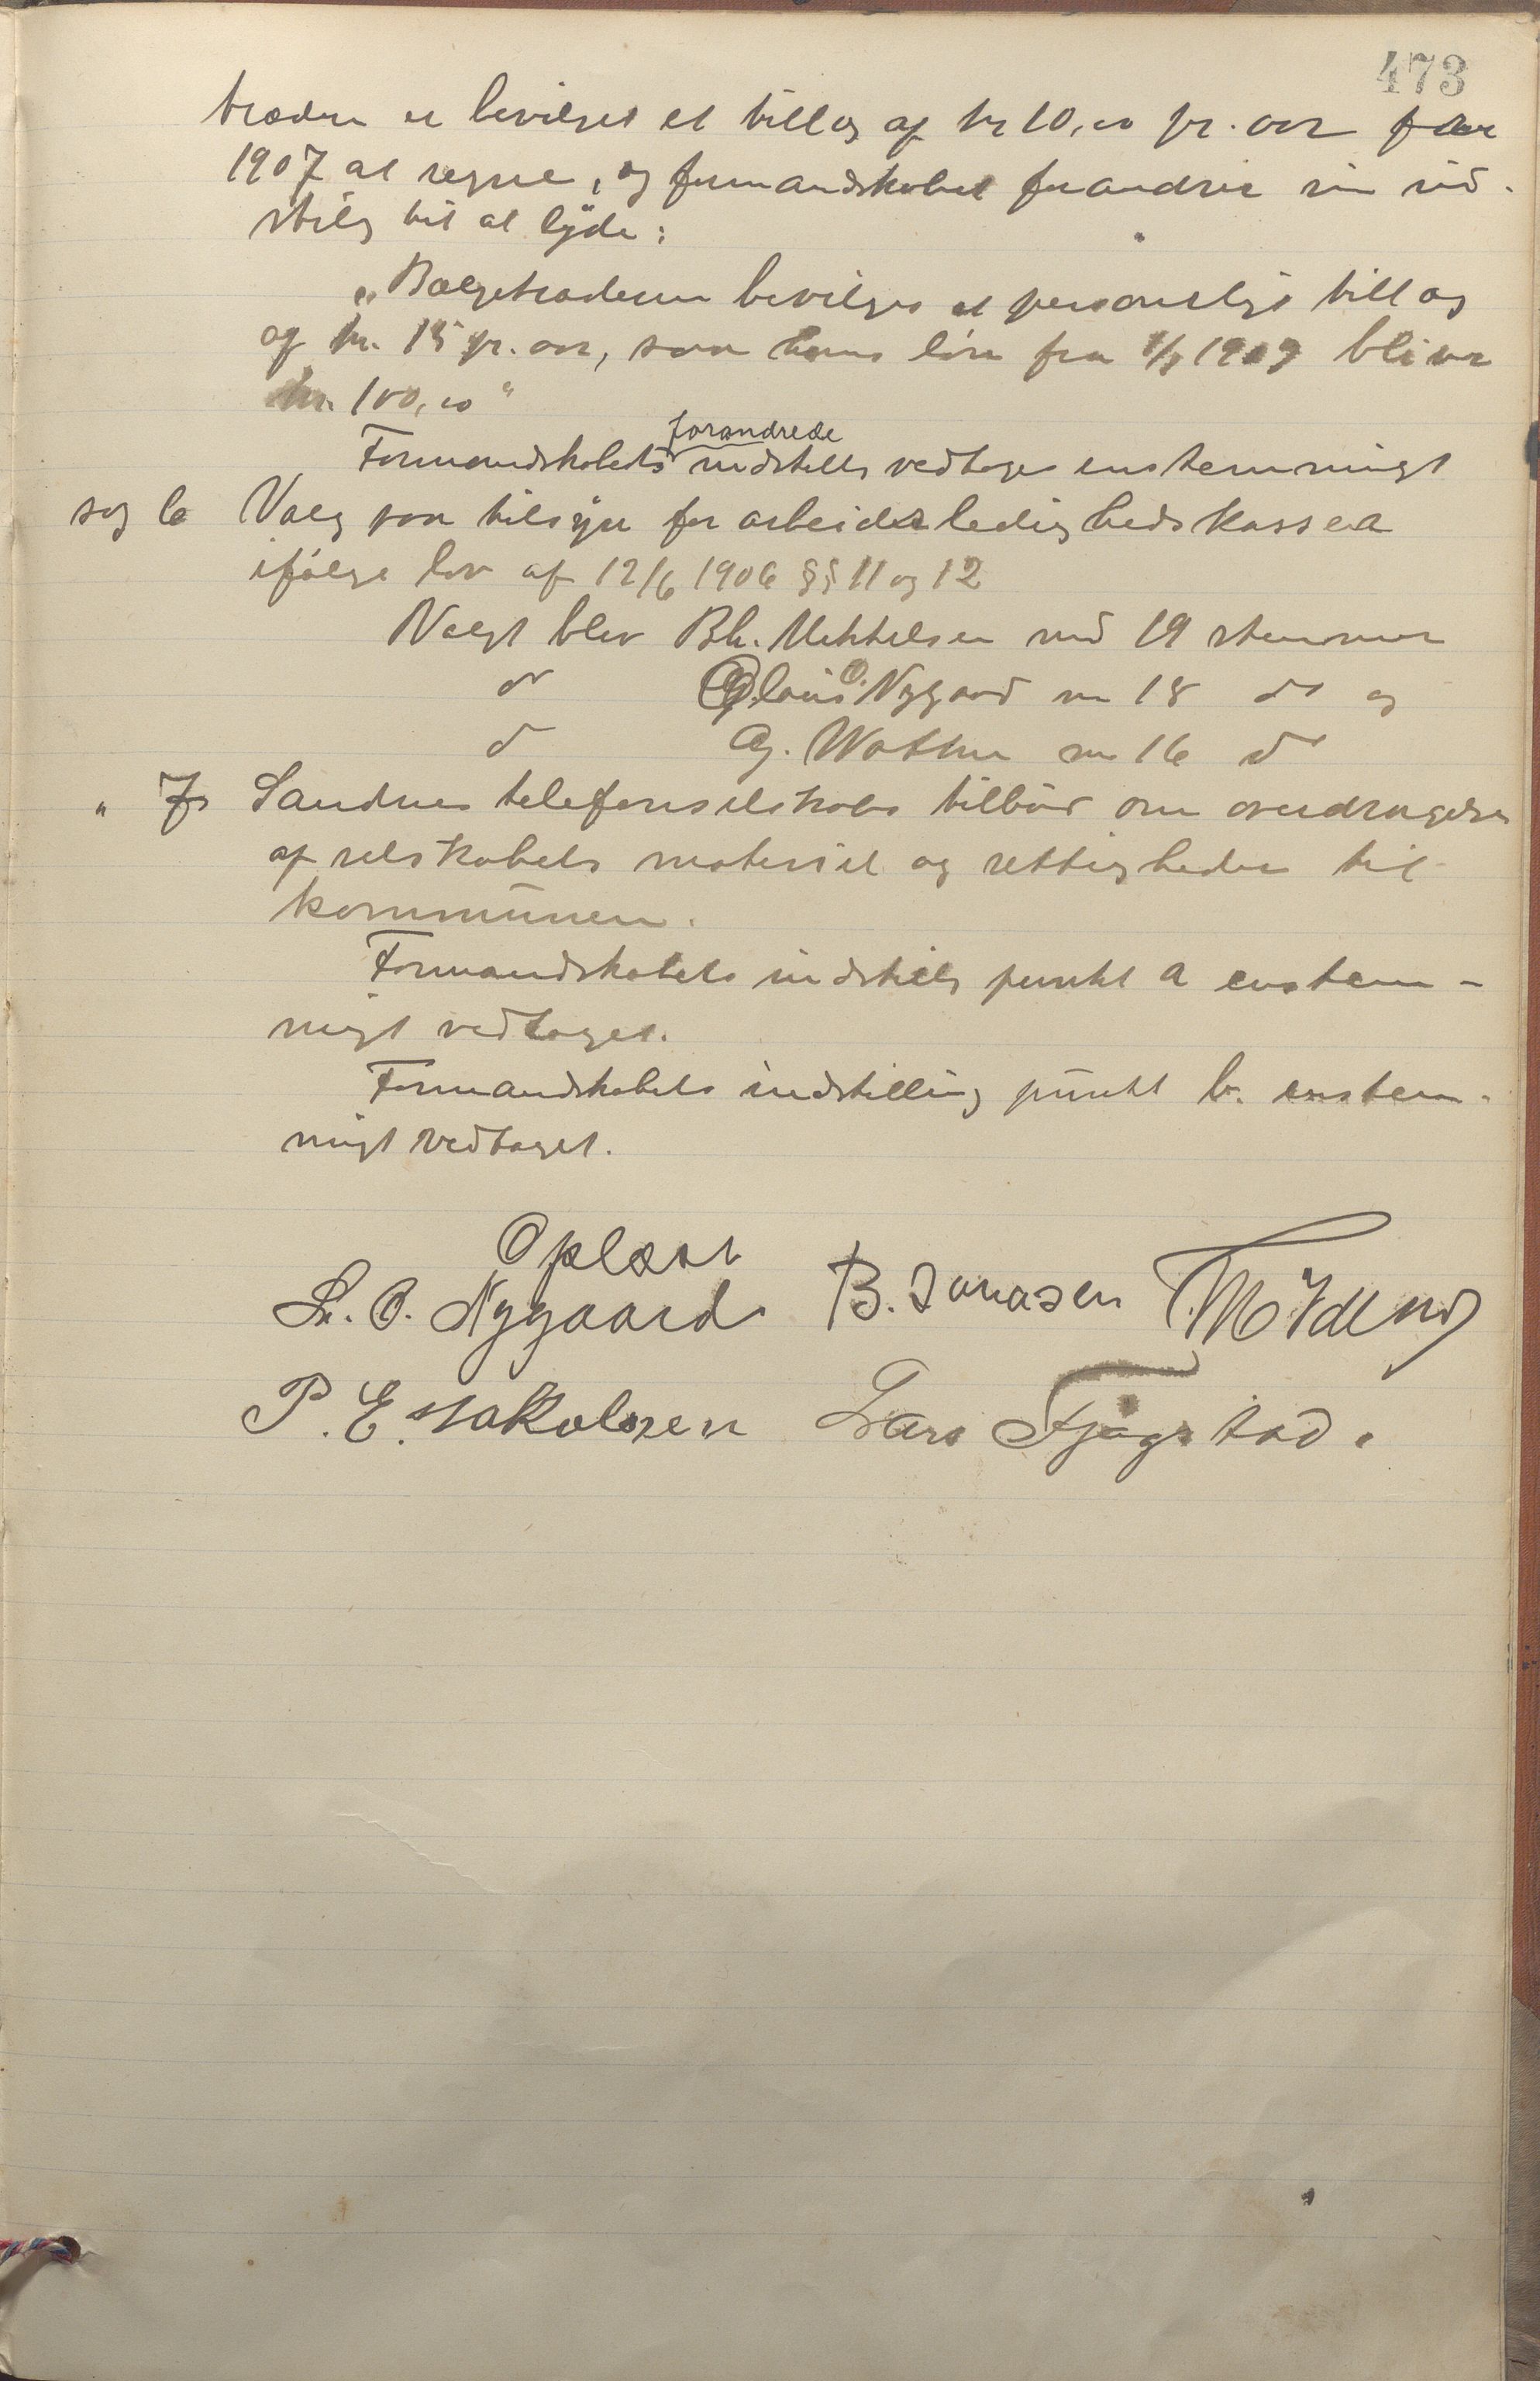 473
træder er bevilget et tillæg af kr 10,00 pr. aar fra
1907 at regne, og formandskabet forandrer sin ind-
stillg til at lyde:
"Bælgetræderen bevilges et personligt tillæg
af kr. 15 pr. aar, saa hans løn fra 1/1 1909 bliver
kr. 100,00"
forandrede
Formandskabets indstillg vedtages enstemmigt
sag 6 Valg paa tilsyn for arbeidsledighedskassen
ifølge lov af 12/6 1906 §§ 11 og 12
Valgt blev B. Mikkelsen med 19 stemmer
do O. Nygaard m 18 do og
do Aj. Wathne m 16 do
" 7 Sandnes telefonselskabs tilbud om overdragelse
af selskabets materiel og rettigheder til
kommunen.
Formandskabets indstillg punkt a enstem-
migt vedtaget.
Formandskabets indstilling punkt b. enstem-
migt vedtaget.
Oplæst
L. O. Nygaard B. Jonasen
P. E. Jakobsen Lars